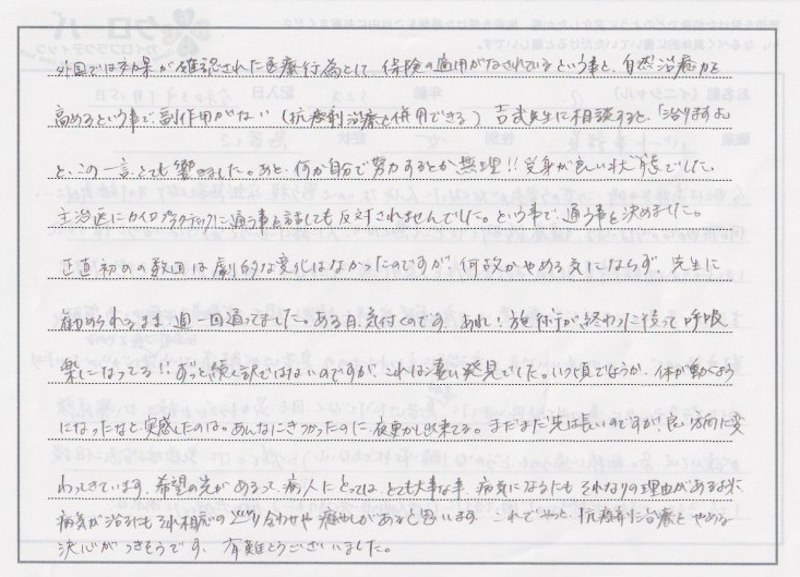 外国では効果が確認された医療行為として、保険の適用がなされているという事と、自然治癒力を
高めるという事で、副作用がない（抗癌剤治療と併用できる）吉武先生に相談すると、「治りますよ」
と、この一言、とても響きました。あと、何か自分で努力するとか無理!!受身が良い状態でした。
主治医にカイロプラクティックに通う事を話しても反対されませんでした。という事で、通う事を決めました。
正直初めの数回は劇的な変化はなかったのですが、何故かやめる気にならず、先生に
勧められるまま、週一回通ってました。ある日、気付くのです。あれ！施術が終わった後って呼吸
楽になってる!!ずっと続く訳ではないのですが、これは凄い発見でした。いつ頃でしょうか、体が動くよう
になったなと実感したのは。あんなにきつかったのに、夜更かし出来てる。まだまだ先は長いのですが、良い方向に変
わってきています。希望の光があるって、病人にとっては、とても大事な事、病気になるにもそれなりの理由がある様に
病気が治るにもそれ相応の 合わせや癒しがあると思います。これでやっと、抗癌剤治療をやめる
決心がつきそうです。有難とうございました。